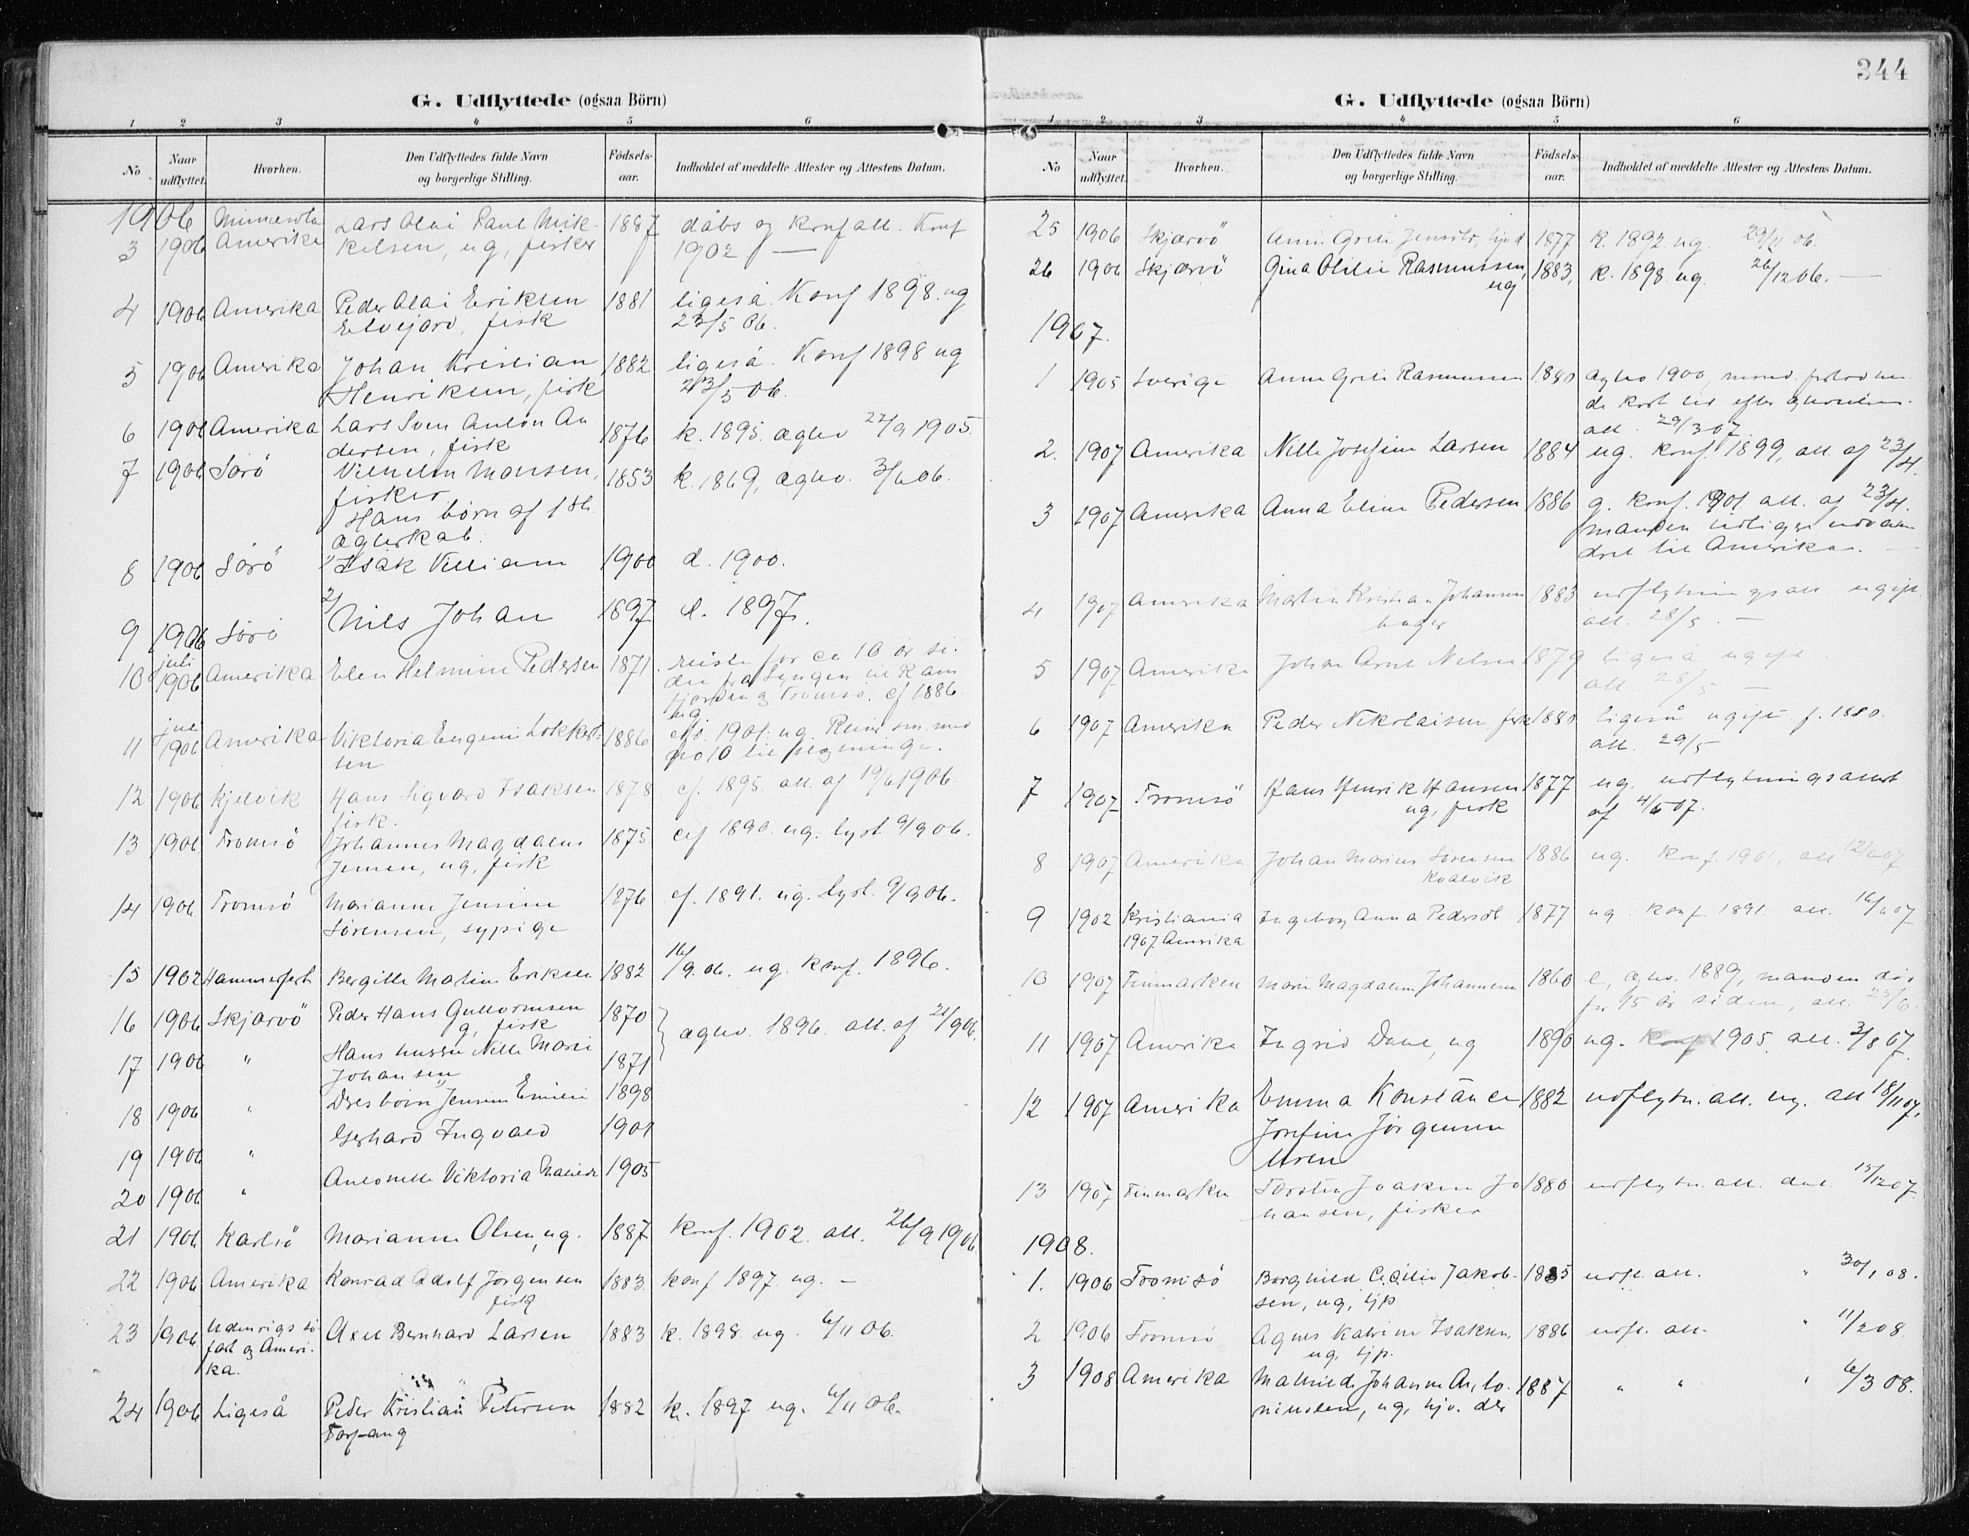 344
G. Udflyttede (ogsaa Börn)
1 2 3 4 5 6
No
Naar udflyttet.
Hvorhen.
Den Udflyttedes fulde Navn og borgerlige Stilling.
Födsels-aar.
Indholdet af meddelte Attester og Attestens Datum.
1906
3 1906 Minnesota Amerika Lars Olai Paul Mik- 1887 dåbs og konf att. Konf
kelsen, ug, fisker 1902 —
4 1906 Amerika Peder Olai Eriksen 1881 ligeså. Konf 1898. ug
Elvejord, fisk 23/5 06.
5 1906 Amerika Johan Kristian 1882 ligeså. Konf 1898 ug
Henriksen, fisk 23/5 06.
6 1906 Amerika Lars Sven Anton An 1876 k. 1895. ægtev 22/9 1905.
dersen, fisk
7 1906 Sørö Vilhelm Monsen, 1853 k. 1869, ægtev. 3/6 06.
fisker
Hans børn af 1ste
ægteskab.
8 1906 Sørö 1/ Isak Villiam 1900 d. 1900.
9 1906 Sørö 2/ Nils Johan 1897 d. 1897.
10 juli 1906 Amerika Elen Helmine Pedersen 1871. reiste for ca 10 år si-
den fra Lyngen til Ram
fjorden og Tromsø. cf 1886
ug.
11 juli 1906 Amerika Viktoria Eugenie 1886 cf. 1901. ug. Reiser sm. med
sen no 10 til
12 1906 Kjelvik Hans Sigvard Isaksen 1878 cf. 1895. att. af 19/6 1906.
fisk.
13 1906 Tromsö Johannes Magdalus 1875. cf 1890. ug. lyst 9/9 06.
Jensen, ug, fisk
14 1906 Tromsö Marianne Jensine 1876 cf. 1891. ug. lyst. 9/9 06.
Sørensen, sypige
15 1902 Hammerfest Bergitte Maline Eriksen 1882 16/9.06. ug. konf. 1896.
16 1906 Skjærvö Peder Hans Guttormsen 1870 ægtev. 1896. att. af 21/9 06.
g, fisk
17 1906 " Hans hustru Nille Marie
Johansen 1871
18 1906 " Deres børn Jensine Emilie 1898
19 1906 " Gerhard Ingvald 1901
20 1906 " Antonette Viktoria 1905
21 1906 Karlsö Marianne Olsen, ug. 1887 Konf. 1902. att. 26/9 1906.
22 1906 Amerika Konrad Adolf Jørgensen 1883. konf 1897. ug. —
fisk
23 1906 Udenrigs sö Axel Bernhard Larsen 1883 k. 1898. ug. 6/11 06.
fart og Ameri-
ka.
24 1906 Ligeså Peder Kristian Petersen 1882 k. 1897 ug. 6/11 06.
G. Udflyttede (ogsaa Börn)
1 2 3 4 5 6
No
Naar udflyttet.
Hvorhen.
Den Udflyttedes fulde Navn og borgerlige Stilling.
Födsels-aar.
Indholdet af meddelte Attester og Attestens Datum.
25 1906 Skjærvö Anne Grete 1877 k. 1892 ug. 06.
26 1906 Skjærvö Gina Otilie Rasmussen, 1883, k. 1898 ug. 26/12 06. —
ug
1907.
1 1905 Sverige Anne Grete Rasmussen 1880 ægtev 1900,
de kort tid efter
att. 29/3 07.
2. 1907 Amerika. Nille Josefine Larsen 1884 ug. konf. 1899, att. af 23/4.
3 1907 Amerika Anna Eline Pedersen 1886 g. konf. 1901 att. af 23/4.
manden tidligere udvan
dret til Amerika. —
4 1907 Amerika Martin Kristian Johannsen 1883 udflytningsatt. ugift
bager att. 28/5. —
5 1907 Amerika Johan Arnt Nilsen 1879 ligeså ugift.
att. 28/5 —
6 1907 Amerika Peder Nikolaisen fisk 1880 ligeså ugift f. 1880.
att. 29/5
7 1907 Tromsö Hans Henrik Hansen 1877 ug. udflytningsattest
ug, fisk af 4/6 07.
8 1907 Amerika Johan Marius Sørensen 1886 ug. konf. 1901, att 12/6 07
Kvalvik
9 1902 Kristiania Ingeborg Anna 1877 ug. konf. 1891. att. 16/6 07
1907 Amerika
10 1907 Finmarken Marie Magdalene Johannesen 1860 e, ægtev. 1889, manden død
for 15 år siden, att. 25/6.
11 1907 Amerika Ingrid Dane, ug 1890 ug. konf 1905. att. 3/8 07.
12 1907 Amerika Emma Konstance 1882 udflytn. att. ug. att 18/11 07.
Josefine Jørgensen
Uren
13 1907 Finmarken Torsten Joakim Jo 1880 udflytn. att. 15/12 07.
hansen, fisker
1908.
1. 1906 Tromsö Borghild Cecilie Jakob- 1885 udfl. att. " 30/1 08.
sen, ug, tjp
2 1906 Tromsö Agnes Katrine Isaksen, 1886 udfl. att. " 11/2 08.
ug, tjp.
3 1908 Amerika Mathilde Johanne Anto- 1887 " " " 6/3 08.
niusten, ug, hjv. der